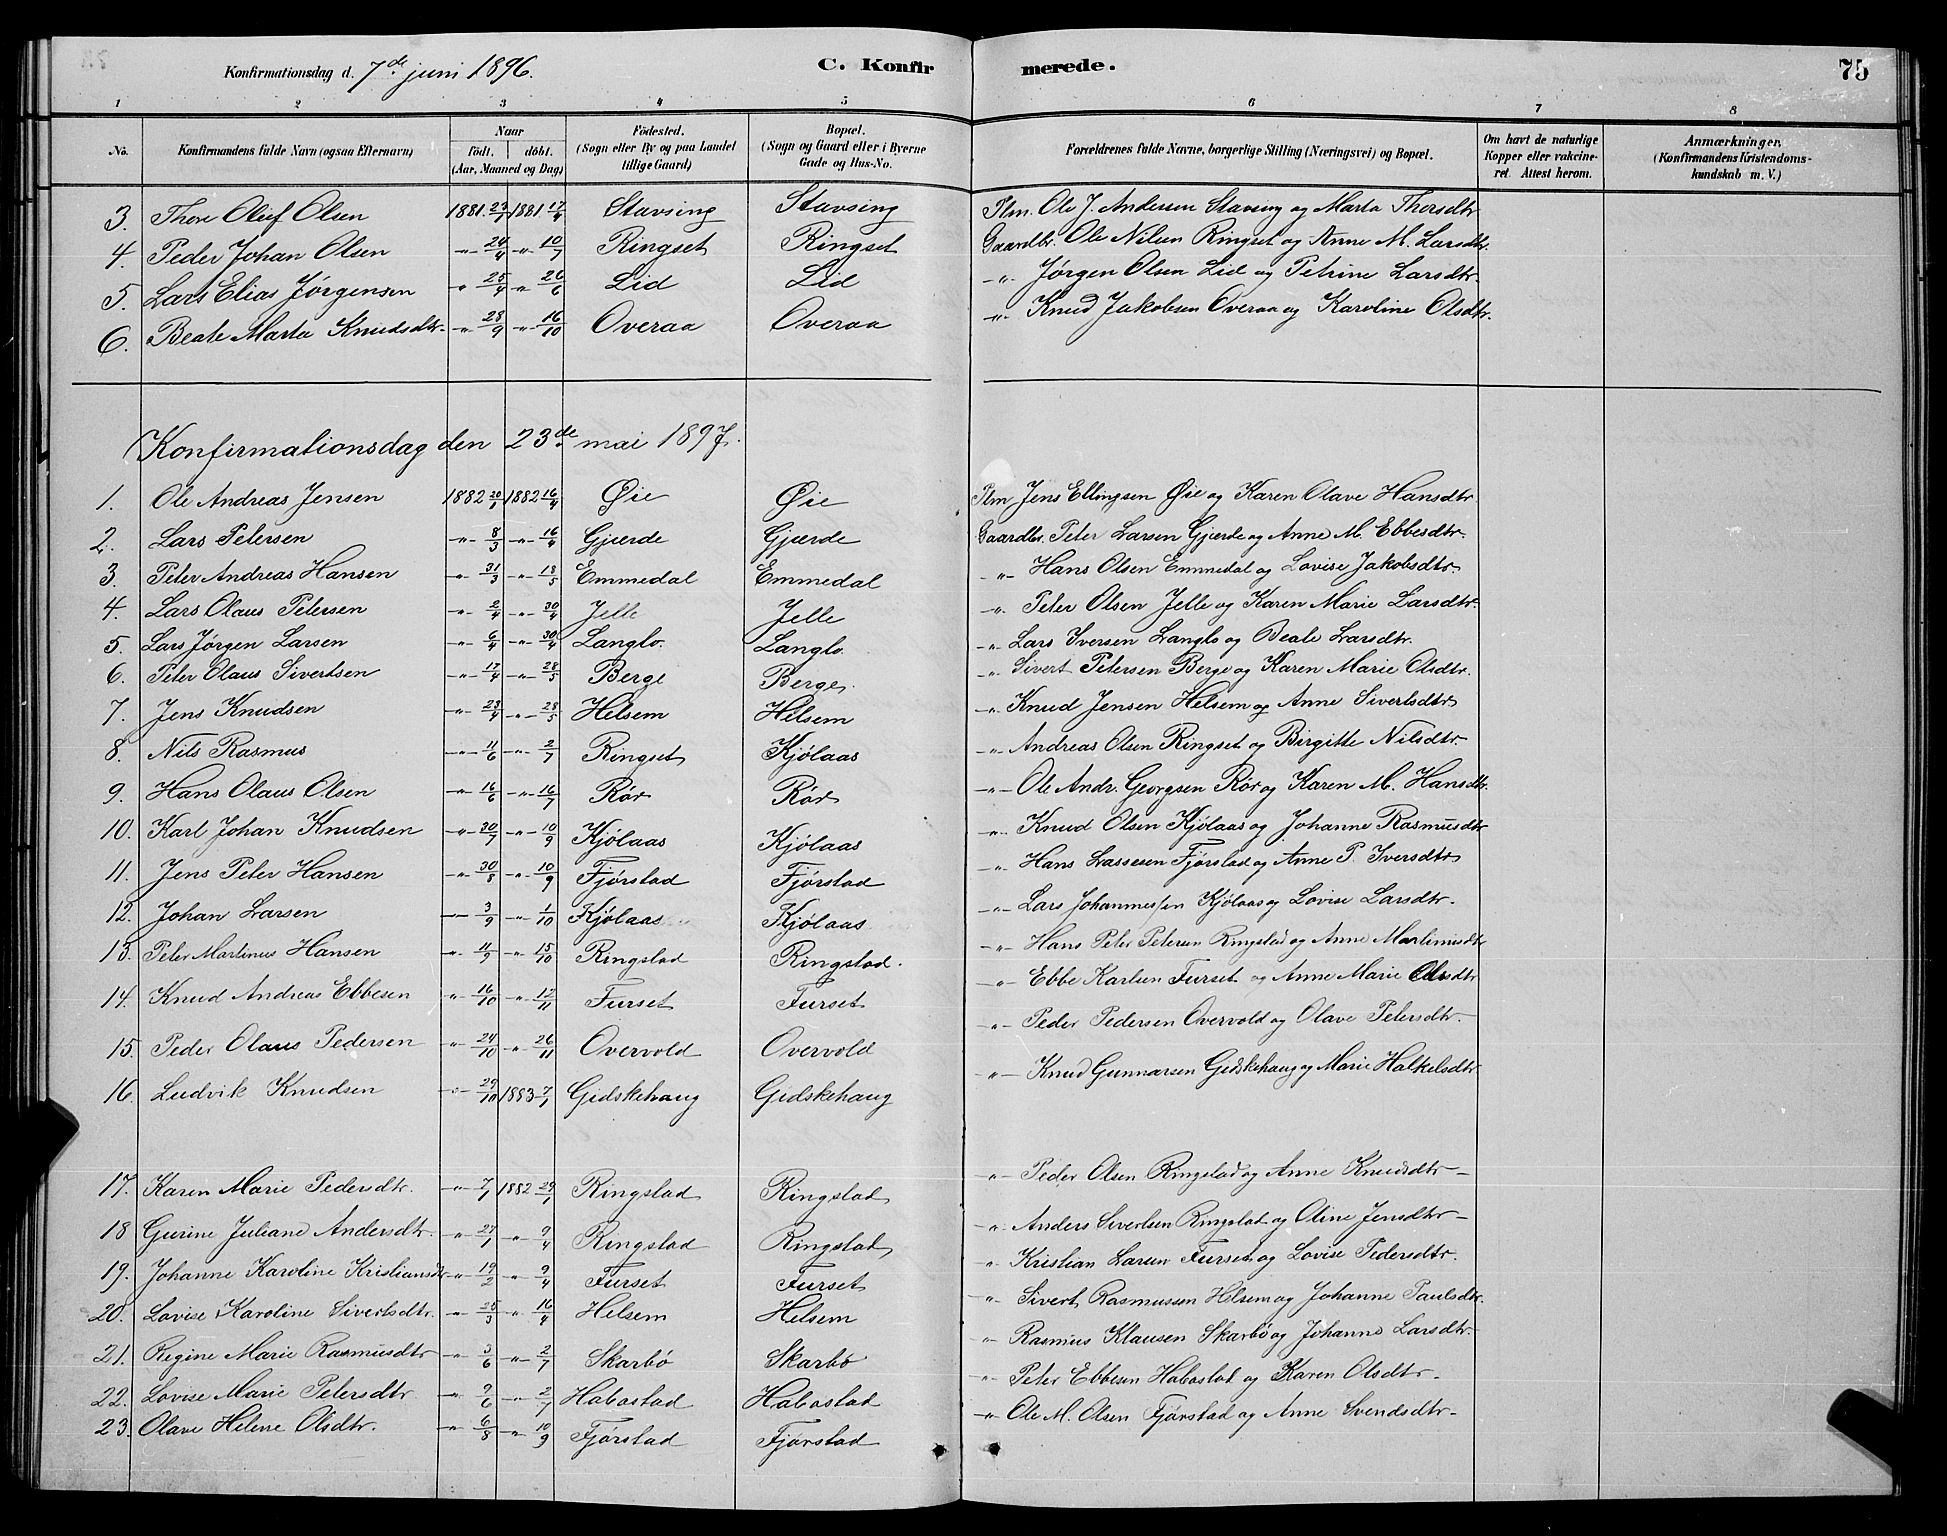 Konfirmationsdag d. 7de juni 1896. C. Konfirmerede. 75
1 2 3 4 5 6 7 8
No. Konfirmandens fulde Navn (ogsaa Efternavn) Naar født. døbt. (Aar, Maaned og Dag) Födested. (Sogn eller By og paa Landet tillige Gaard) Bopæl. (Sogn og Gaard eller i Byerne Gade og Hus-No. Forældrenes fulde Navne, borgerlige Stilling (Næringsvei) og Bopæl. Om havt de naturlige Kopper eller vakcineret. Attest herom. Anmærkninger. (Konfirmandens Kristendomskundskab m. V.)
3. Thore Oluf Olsen 1881 23/7 1881 17/9 Stavsing Stavsing Plm. Ole J. Andersen Stavsing og Marta Thorsdtr
4. Peder Johan Olsen -"- 24/4 -"- 10/7 Ringset Ringset Gaardbr. Ole Nilsen Ringset og Anne M. Larsdtr.
5. Lars Elias Jørgensen " 25/4 " 26/6 Lid Lid -"- Jørgen Olsen Lid og Petrine Larsdtr.
6. Beate Marta Knudsdtr. -"- 28/9 -"- 16/10 Overaa Overaa -"- Knud Jakobsen Overaa og Karoline Olsdtr.
Konfirmationsdag den 23de mai 1897.
1. Ole Andreas Jensen 1882 20/1 1882 16/4 Øie Øie Plm Jens Ellingsen Øie og Karen Olave Hansdtr
2. Lars Petersen -"- 8/3 -"- 16/4 Gjærde Gjærde Gaardbr. Peter Larsen Gjærde og Anne M. Ebbesdtr.
3. Peter Andreas Hansen -"- 31/3 -"- 18/5 Emmedal Emmedal -"- Hans Olsen Emmedal og Lovise Jakobsdtr.
4. Lars Olaus Petersen -"- 2/4 -"- 30/4 Jelle Jelle -"- Peter Olsen Jelle og Karen Marie Larsdtr.
5. Lars Jørgen Larsen -"- 6/4 -"- 30/4 Langlo. Langlo -"- Lars Iversen Langlo og Beate Larsdtr.
6. Peter Olaus Sivertsen -"- 17/4 -"- 28/5 Berge Berge. -"- Sivert Petersen Berge og Karen Marie Olsdtr.
7. Jens Knudsen -"- 23/4 -"- 28/5 Helsem Helsem -"- Knud Jensen Helsem og Anne Sivertsdtr
8. Nils Rasmus -"- 11/6 -"- 2/7 Ringset Kjölaas -"- Andreas Olsen Ringset og Birgitte Nilsdtr.
9. Hans Olaus Olsen -"- 16/6 -"- 16/7 Rör Rör -"- Ole Andr. Georgsen Rör og Karen M. Hansdtr.
10. Karl Johan Knudsen -"- 30/7 -"- 10/9 Kjölaas Kjölaas -"- Knud Olsen Kjölaas og Johanne Rasmusdtr
11. Jens Peter Hansen -"- 30/8 -"- 10/9 Fjörstad Fjörstad -"- Hans Lassesen Fjörstad og Anne P. Iversdtr
12. Johan Larsen -"- 3/9 -"- 1/10 Kjölaas Kjölaas -"- Lars Johannessen Kjölaas og Lovise Larsdtr.
13. Peter Martinus Hansen -"- 11/9 -"- 15/10 Ringstad Ringstad. -"- Hans Peter Petersen Ringstad og Anne Martinusdtr
14. Knud Andreas Ebbesen -"- 16/10 -"- 12/11 Furset Furset -"- Ebbe Karlsen Furset og Anne Marie Olsdtr
15. Peder Olaus Pedersen " 24/10 " 26/11 Overvold Overvold -"- Peder Pedersen Overvold og Olave Petersdtr.
16. Ludvik Knudsen -"- 29/10 1883 7/1 Gidskehaug Gidskehaug -"- Knud Gunnarsen Gidskehaug og Marie Halkelsdtr
17. Karen Marie Pedersdtr. -"- 7/1 1882 29/1 Ringstad Ringstad -"- Peder Olsen Ringstad og Anne Knudsdtr-
18 Gurine Juliane Andersdtr. -"- 27/1 -"- 9/4 Ringstad Ringstad -"- Anders Sivertsen Ringstad og Oline Jensdtr-
19. Johanne Karoline Kristiansdtr -"- 19/2 -"- 9/4 Furset Furset -"- Kristian Larsen Furset og Lovise Pedersdtr.
20. Lovise Karoline Sivertsdtr. -"- 25/3 " 16/4 Helsem Helsem -"- Sivert Rasmussen Helsem og Johanne Paulsdtr.
21. Regine Marie Rasmusdtr -"- 3/6 -"- 2/7 Skarbö Skarbö -"- Rasmus Klausen Skarbö og Johanne Larsdtr.
22. Lovise Marie Petersdtr. " 9/6 -"- 2/7 Habostad Habostad -"- Peter Ebbesen Habostad og Karen Olsdtr.
23. Olave Helene Olsdtr. -"- 6/8 -"- 10/9 Fjörstad Fjörstad -"- Ole M. Olsen Fjörstad og Anne Svendsdtr-